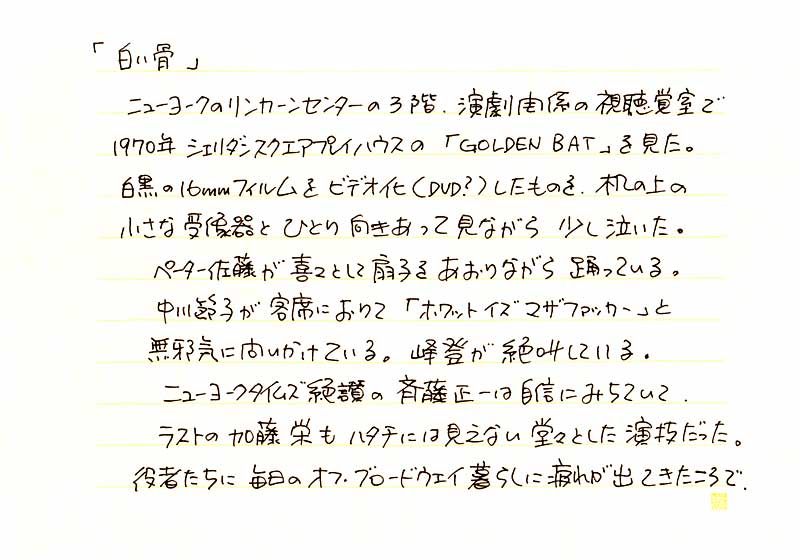 「白い骨」
ニューヨークのリンカーンセンターの3階、演劇関係の視聴覚室で
1970年 シェリダンスクエアプレイハウスの「GOLDEN BAT」を見た。
白黒の16mmフィルムをビデオ化(DVD?)したものを、机の上の
小さな受像器とひとり向きあって見ながら 少し泣いた。
ペーター佐藤が喜々として扇子をあおりながら 踊っている。
中川節子が客席におりて「ホワットイズマザファッカー」と
無邪気に問いかけている。峰登が絶叫している。
ニューヨークタイムズ絶讃の斉藤正一は自信にみちていて、
ラストの加藤栄もハタチには見えない堂々とした演技だった。
役者たちに毎日のオフ・ブロードウェイ暮らしに疲れが出てきたころで、